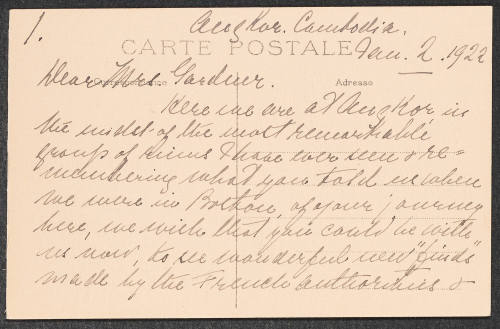 1.
Angkor. Cambodia.
CARTE POSTALE
Jan. 2. 1922
Dear Mrs Gardner.
Adresse
Here we are at Angkor in
the midst of the most remarkable
group of ruins I have ever seen & re=
membering what you told us when
we were in Boston, of your journey
here, we wish that you could be with
us now, to see wonderful new "finds"
made by the French authorities &